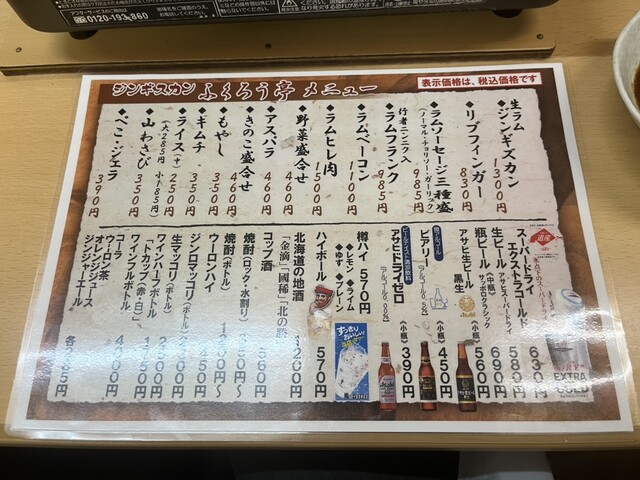 0120-193-860
ジンギスカン ふくろう亭 メニュー
表示価格は、税込価格です
◆生ラム
ジンギスカン 1300円
◆リブフィンガー 930円
◆ラムソーセージ三種盛
(ノーマル・チョリソー・ガーリック) 985円
行者ニンニク入
◆ラムフランク 985円
◆ラムベーコン 1100円
◆ラムヒレ肉 1500円
◆野菜盛合せ 460円
◆アスパラ 460円
◆きのこ盛合せ 460円
◆もやし 350円
◆キムチ 350円
◆ライス(中) 250円
(大285円 小185円)
◆山わさび 350円
◆べこ・ジェラ 390円
道産
スーパードライ
エクストラコールド 630円
生ビール 580円
瓶ビール(中瓶) 690円
サッポロクラシック
生ビール(小瓶) 560円
アサヒ生ビール 黒生
ビアリー(小瓶) 450円
ビールテイスト清涼飲料
アサヒドライゼロ(小瓶) 390円
(アルコール0.00%)
樽ハイ 570円
◆レモン ◆ライム
◆ゆず ◆プレーン
ハイボール 570円
北海道の地酒 1200円
「金滴」「國稀」「北の勝」
コップ酒 560円
焼酎(ロック・水割り) 350円〜
焼酎(ボトル)
ウーロンハイ 450円
ジンロマッコリ(ボトル)
生マッコリ(ボトル)
ワインハーフボトル
「トカップ(赤・白)」
ワインフルボトル
コーラ 400円
ウーロン茶
オレンジジュース
ジンジャーエール 各285円
Asahi
EXTRA
COLD